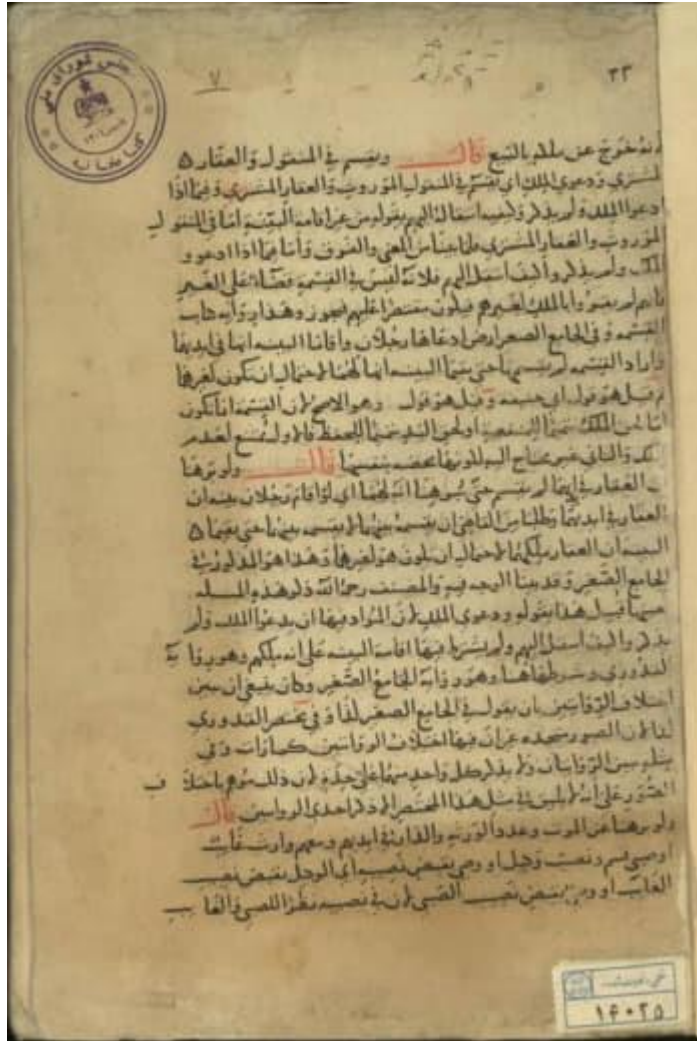 ٣٣
٧
مجلس شورای ملی
کتابخانه
خرج عن ملكهم بالبيع قال ويقسم في المنقول والعقار
المشترى ودعوى الملك اي يقسم في المنقول الموروث والعقار المشترى وفيما اذا
ادعوا الملك ولم يذكروا كيف انتقل اليهم بقولهم من غير اقامة البينة اما في المنقول
الموروث والعقار المشترى فلما بينا من المعنى والفرق واما فيما اذا ادعوا
الملك ولم يذكروا كيف انتقل اليهم فلانه ليس في القسمة قضاء على الغير
فانهم لم يقروا بالملك لغيرهم فيكون مقتصرا عليهم فيجوز وهذا رواية كتاب
القسمة وفي الجامع الصغير ارض ادعاها رجلان واقاما البينة انها في ايديهما
واراد القسمة لم يقسمها حتى يقيما البينة انها لهما لاحتمال ان تكون لغيرهما
ثم قيل هو قول ابي حنيفة وقيل هو قول وهو الاصح لان القسمة اما تكون
لحق الملك تتميما للمنفعة او لحق اليد تتميما للحفظ فالاول ممتنع لعدم
الملك والثاني غير محتاج اليه لانها محصنة بنفسها قال ولو برهنا
ان العقار في ايديهما لم يقسم حتى يبرهنا انه لهما اي لو اقام رجلان بينة ان
العقار في ايديهما وطلبا من القاضي ان يقسمه بينهما لا يقسمه بينهما حتى يقيما
البينة ان العقار ملكهما لاحتمال ان يكون هو لغيرهما وهذا هو المذكور في
الجامع الصغير وقد بينا الوجه فيه والمصنف رحمه الله ذكر هذه المسئلة
قبيل هذا بقوله ودعوى الملك لان المراد فيها ان يدعوا الملك ولم
يذكروا كيف انتقل اليهم ولم يشترط فيها اقامة البينة على انه ملكهم وهو رواية
القدوري وشرطها هنا وهو رواية الجامع الصغير وكان ينبغي ان يبين
اختلاف الروايتين بان يقول في الجامع الصغير كذا وفي مختصر القدوري
كذا لان الصورة متحدة غير ان فيها اختلاف الروايتين
بين الروايتان ولا يذكر كل واحد منهما على حدة لان ذلك موهم باختلاف
الصور على انه لا يليق في مثل هذا المختصر الا ذكر احدى الروايتين قال
ولو برهنا على الموت وعدد الورثة والدار في ايديهم ومعهم وارث غائب
او صبي قسم ونصب وكيل او وصي بقبض نصيبه اي الوكيل بقبض نصيب
الغائب او وصي بقبض نصيب الصبي لان في نصبه نظرا للصبي والغائب
١٤٠٢٥